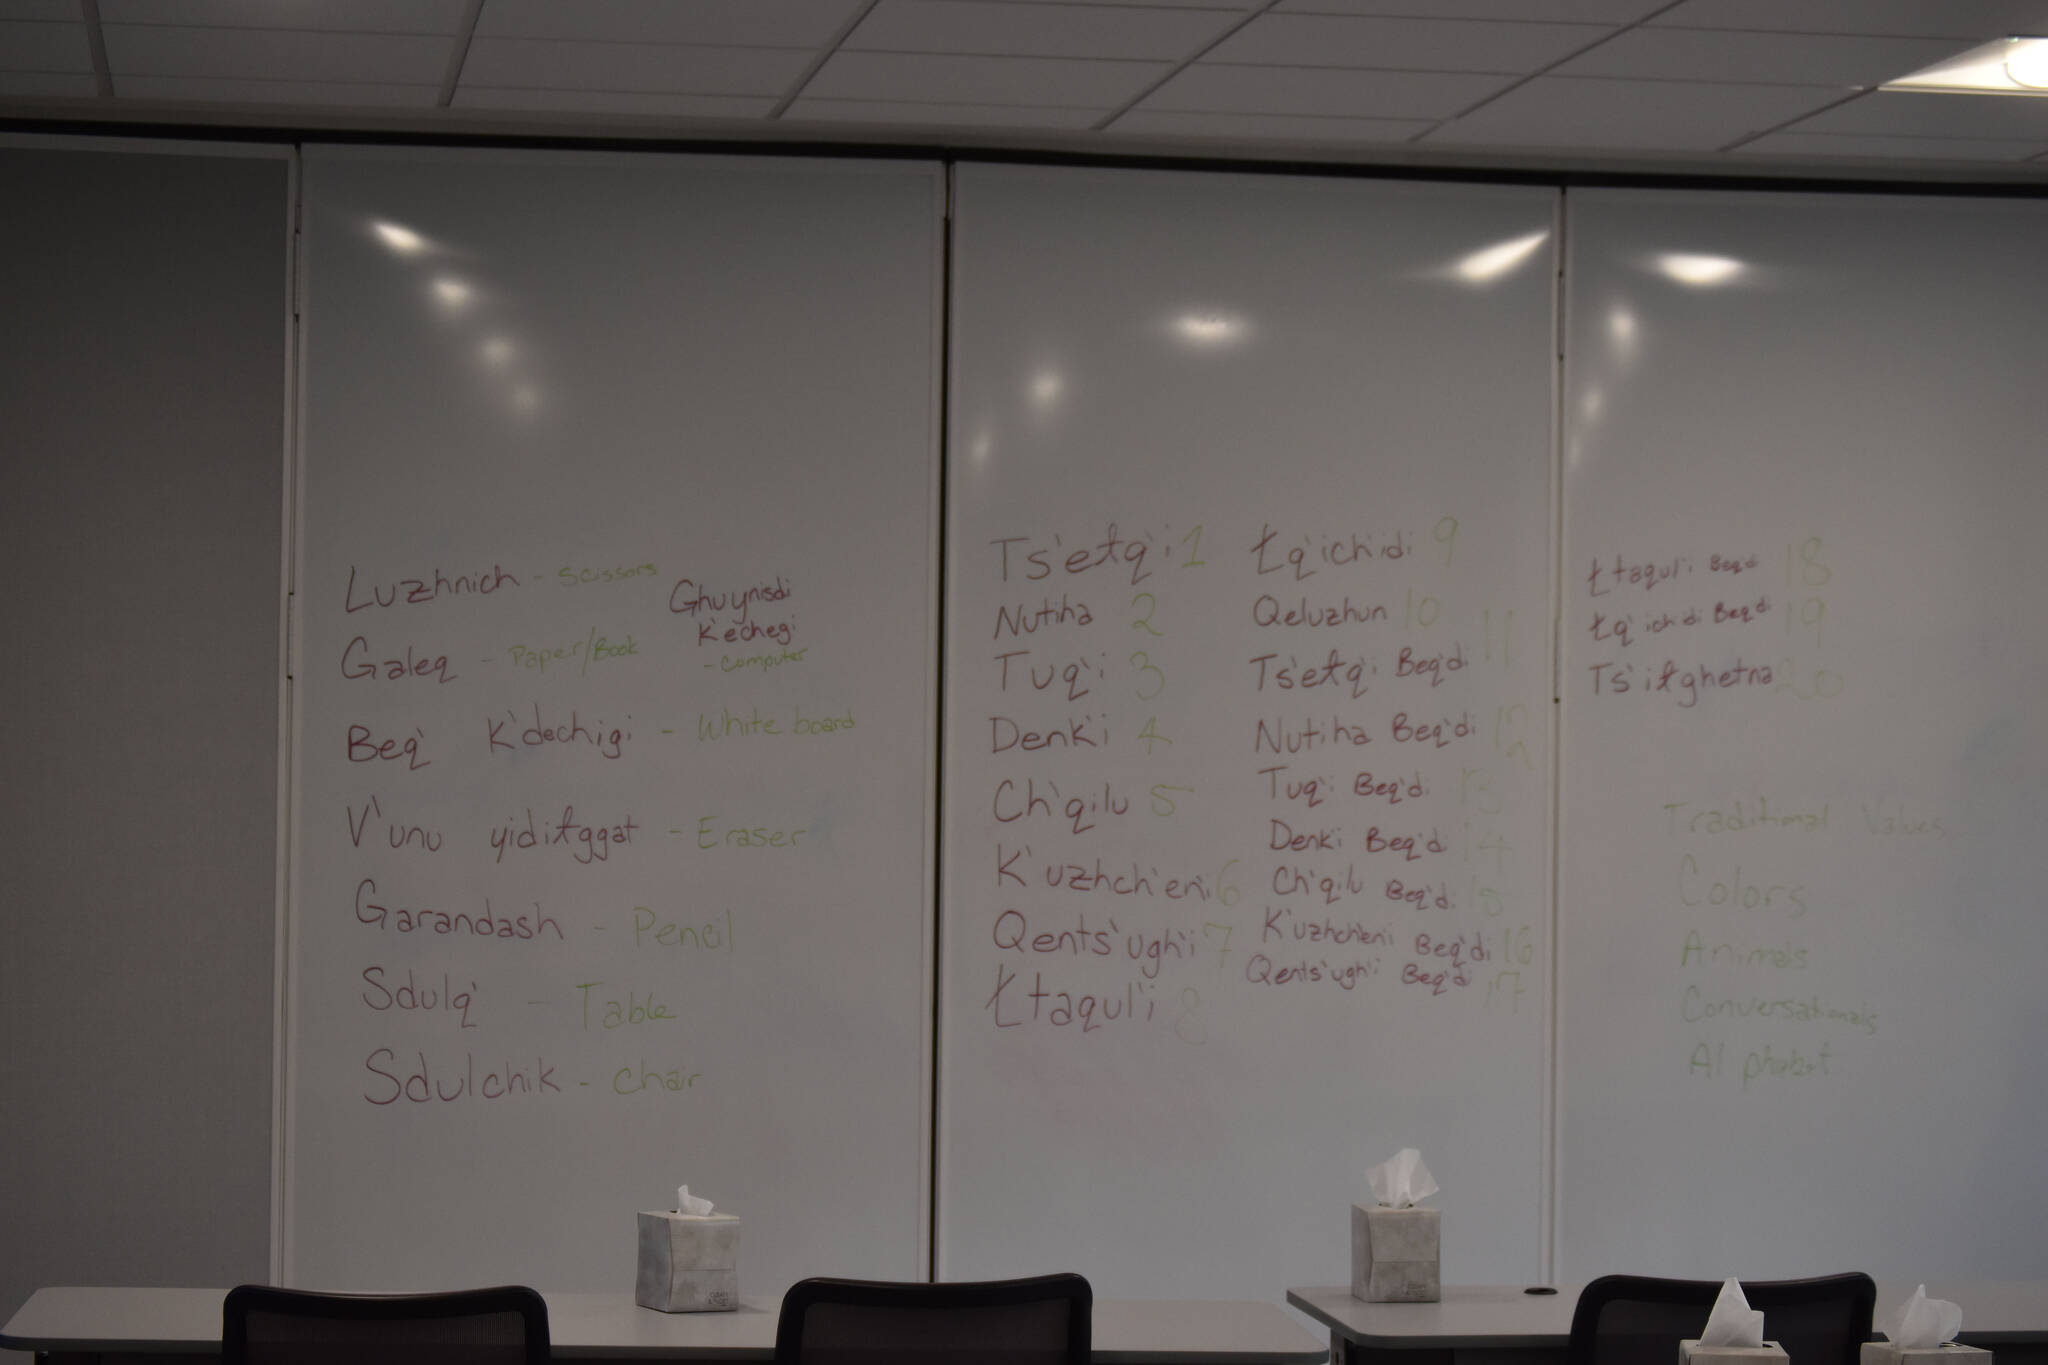 Luzhnich - Scissors
Ghuynisdi
k'echegi
- Computer
Galeq - Paper/Book
Beq' K'dechigi - White board
V'unu yidiłggat - Eraser
Garandash - Pencil
Sdulq' - Table
Sdulchik - Chair
Ts'ełq'i 1
Nutiha 2
Tuq'i 3
Denk'i 4
Ch'qilu 5
K'uzhch'eni 6
Qents'ugh'i 7
Łtaqul'i 8
Łq'ich'idi 9
Qeluzhun 10
Ts'ełq'i Beq'di 11
Nutiha Beq'di 12
Tuq'i Beq'di 13
Denk'i Beq'di 14
Ch'qilu Beq'di 15
K'uzhch'eni Beq'di 16
Qents'ugh'i Beq'di 17
Łtaqul'i Beq'di 18
Łq'ich'idi Beq'di 19
Ts'iłghetna 20
Traditional Values
Colors
Animals
Conversationals
Alphabet